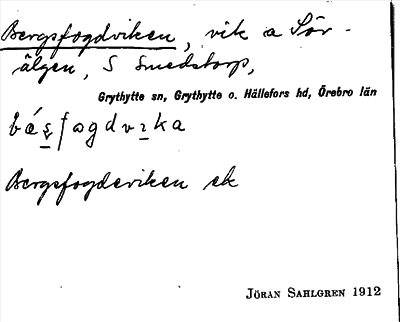 Bergsfogdviken, vik a Sör-
älgen, S Smedstorp,
Grythytte sn, Grythytte o. Hällefors hd, Örebro län
Bergsfogdeviken ek
JÖRAN SAHLGREN 1912